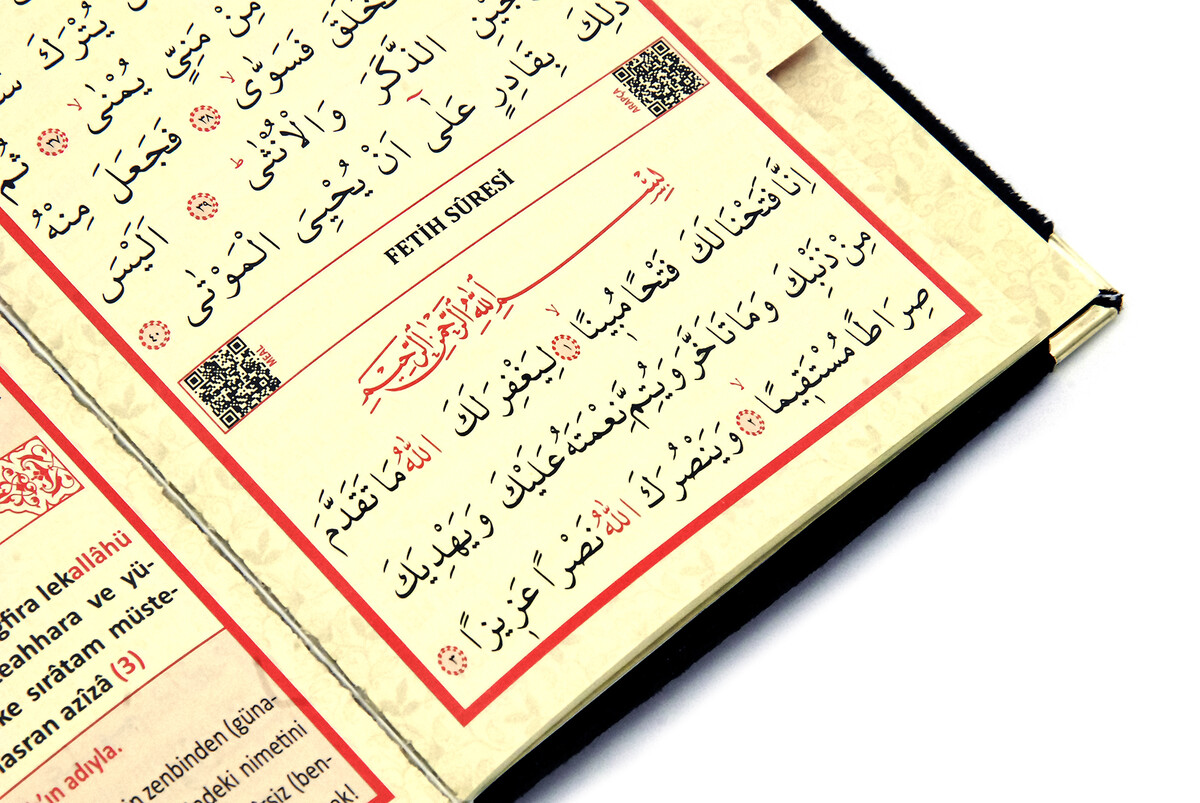 يُتْرَكَ
مِنْ مَنِيٍّ يُمْنٰىۙ ﴿٣٧﴾ ثُمَّ
فَسَوّٰىۙ ﴿٣٨﴾ فَجَعَلَ مِنْهُ
الذَّكَرَ وَالْاُنْثٰىۜ ﴿٣٩﴾ اَلَيْسَ
ذٰلِكَ بِقَادِرٍ عَلٰٓى اَنْ يُحْيِيَ الْمَوْتٰى ﴿٤٠﴾
ARAPÇA
FETİH SÛRESİ
MEAL
بِسْمِ اللّٰهِ الرَّحْمٰنِ الرَّحِيمِ
اِنَّا فَتَحْنَا لَكَ فَتْحًا مُبِينًاۙ ﴿١﴾ لِيَغْفِرَ لَكَ اللّٰهُ مَا تَقَدَّمَ
مِنْ ذَنْبِكَ وَمَا تَاَخَّرَ وَيُتِمَّ نِعْمَتَهُ عَلَيْكَ وَيَهْدِيَكَ
صِرَاطًا مُسْتَقِيمًاۙ ﴿٢﴾ وَيَنْصُرَكَ اللّٰهُ نَصْرًا عَزِيزًا ﴿٣﴾
lekallâhü
ve yü-
sırâtam müste-
azîzâ (3)
adıyla.
zenbinden (güna-
nimetini
(ben-